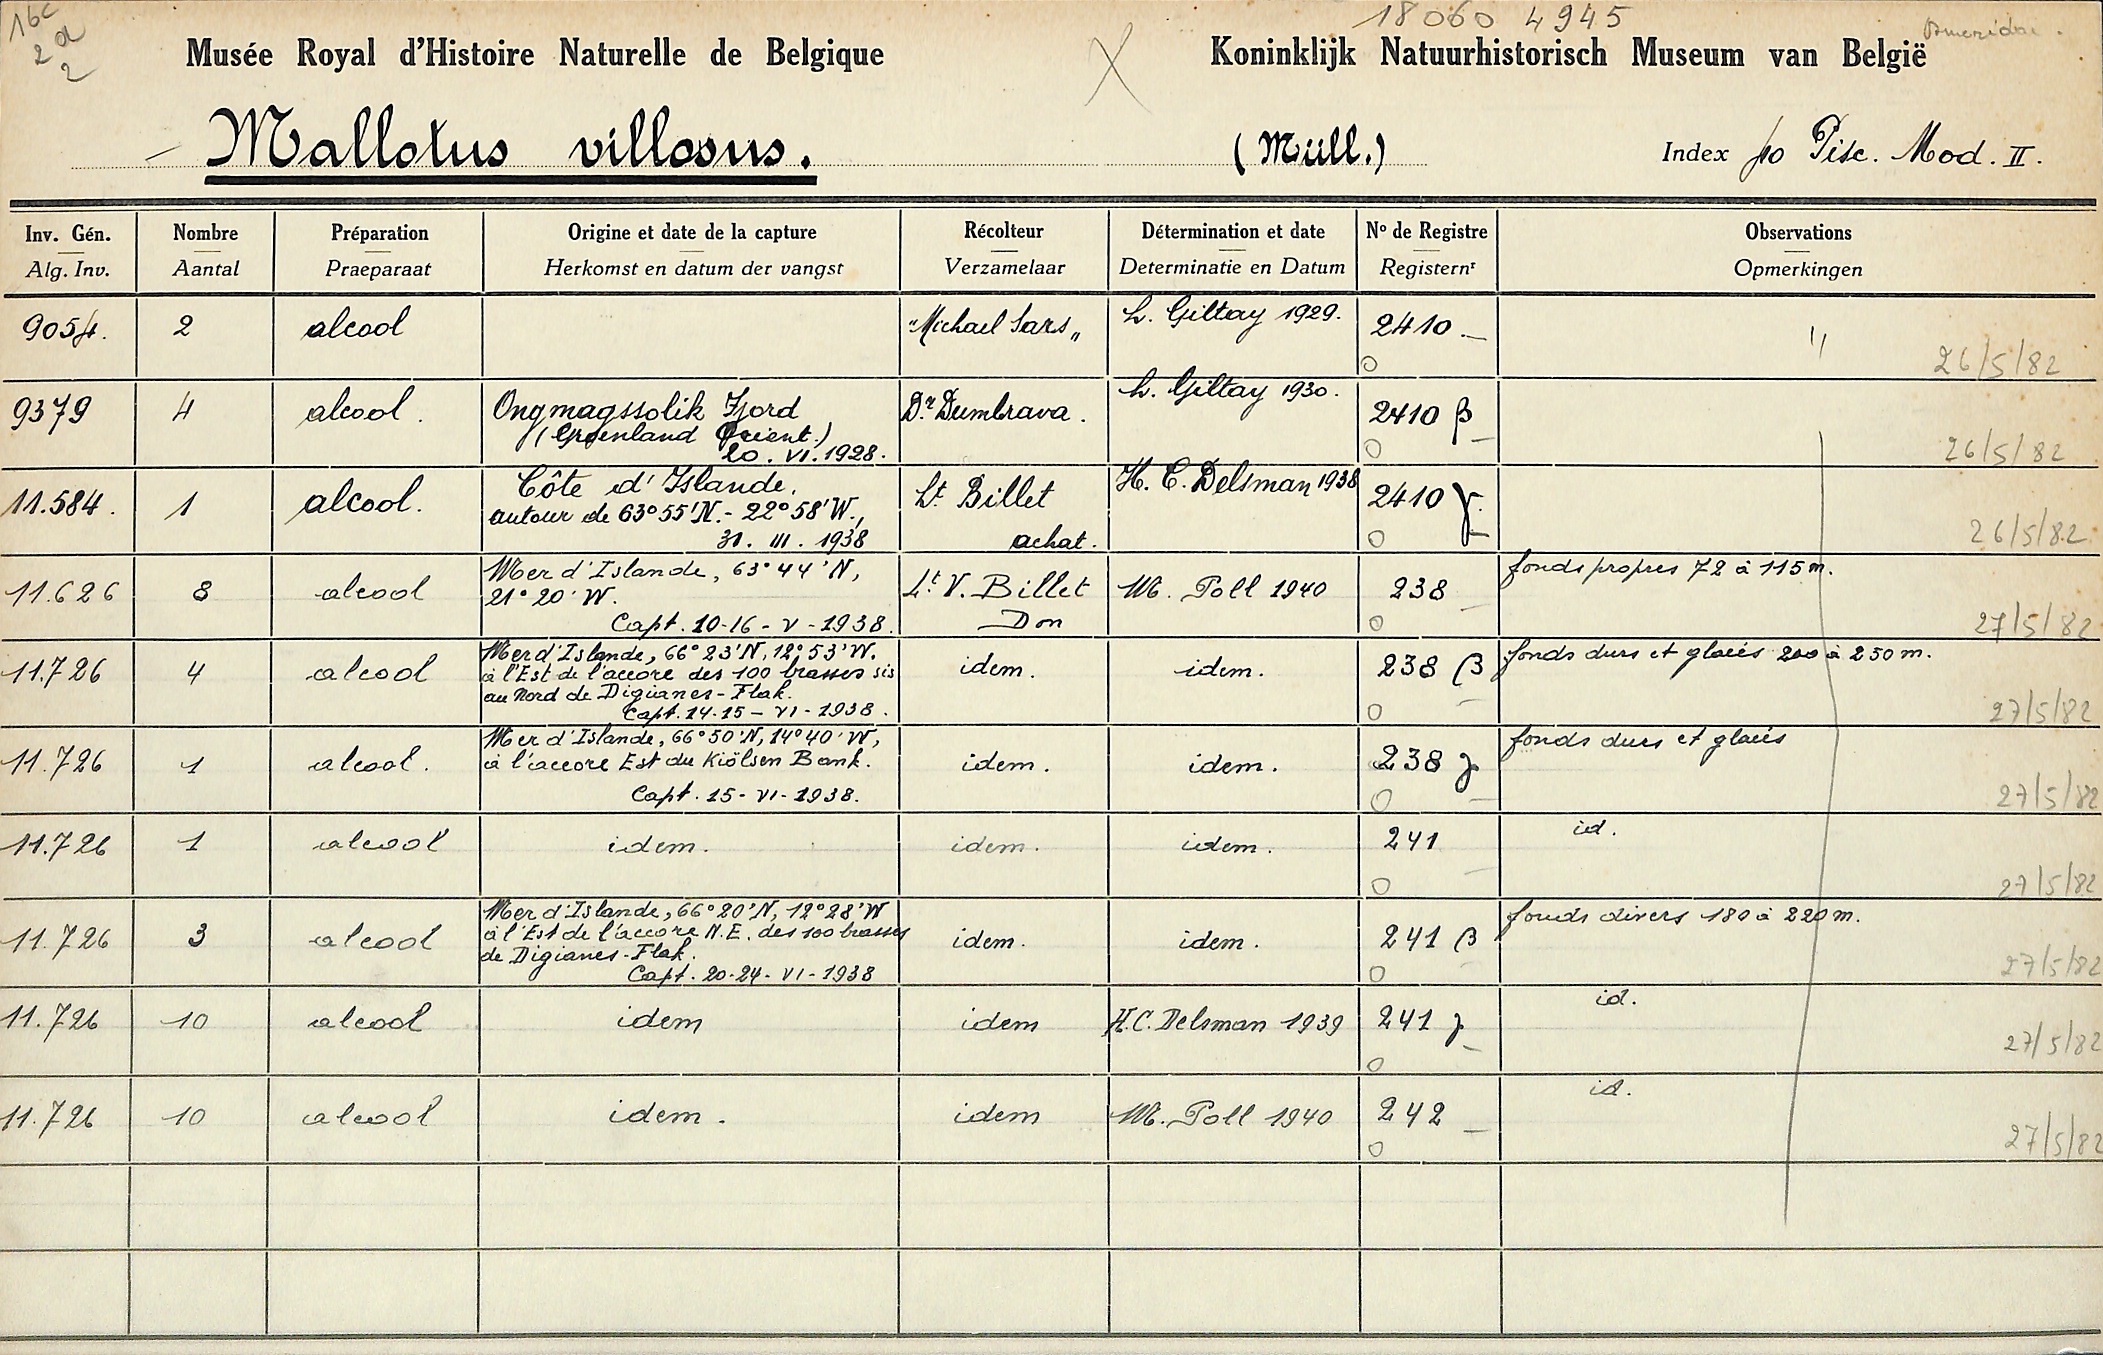 16c
2a
2
18060 4945
Musée Royal d'Histoire Naturelle de Belgique
Koninklijk Natuurhistorisch Museum van België
Mallotus villosus. (Müll.) Index fo Pisc. Mod. II.
Inv. Gén. Nombre Préparation Origine et date de la capture Récolteur Détermination et date No de Registre Observations
Alg. Inv. Aantal Praeparaat Herkomst en datum der vangst Verzamelaar Determinatie en Datum Registernr Opmerkingen
9054. 2 alcool "Michael Sars„ L. Giltay 1929. 2410 — " 26/5/82
9379 4 alcool. Ongmagssolik Fjord
(Groenland Orient.)
20. VI. 1928. Dr Dumbrava. L. Giltay 1930. 2410 β 26/5/82
11.584. 1 alcool. Côte d'Islande,
autour de 63°55'N.- 22°58'W.,
31. III. 1938 Lt Billet
achat. H. C. Delsman 1938 2410 γ. 26/5/82
11.626 8 alcool Mer d'Islande, 63°44'N,
21°20'W.
Capt. 10-16-V-1938. Lt V. Billet
Don M. Poll 1940 238 fonds propres 72 à 115 m. 27/5/82
11.726 4 alcool Mer d'Islande, 66°23'N, 12°53'W.
à l'Est de l'accore des 100 brasses sis
au Nord de Digianes-Flak.
Capt. 14-15-VI-1938. idem. idem. 238 β fonds durs et glacés 200 à 250 m. 27/5/82
11.726 1 alcool. Mer d'Islande, 66°50'N, 14°40'W,
à l'accore Est du Kiölsen Bank.
Capt. 15-VI-1938. idem. idem. 238 γ fonds durs et glacés 27/5/82
11.726 1 alcool idem. idem. idem. 241 id. 27/5/82
11.726 3 alcool Mer d'Islande, 66°20'N, 12°28'W
à l'Est de l'accore N.E. des 100 brasses
de Digianes-Flak.
Capt. 20-24-VI-1938 idem. idem. 241 β fonds divers 180 à 220 m. 27/5/82
11.726 10 alcool idem idem H.C. Delsman 1939 241 γ id. 27/5/82
11.726 10 alcool idem. idem M. Poll 1940 242 id. 27/5/82